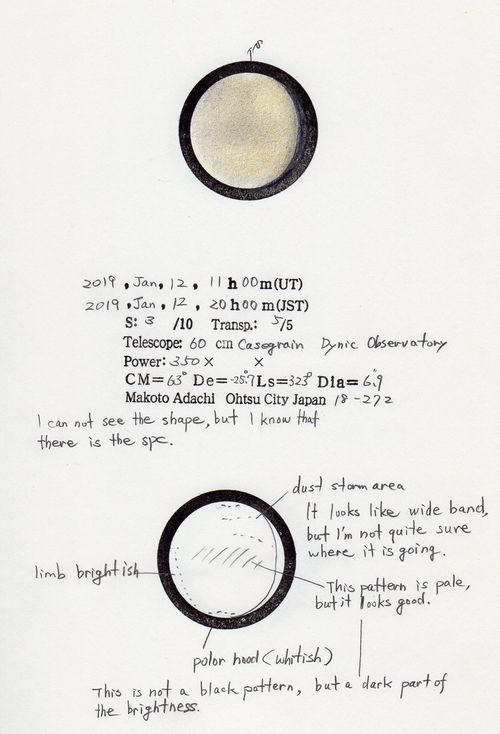 2019, Jan, 12, 11 h 00 m (UT)
2019, Jan, 12, 20 h 00 m (JST)
S: 3 /10 Transp.: 5/5
Telescope: 60 cm Casegrain Dynic Observatory
Power: 350 × ×
CM=63° De=-25.°7 Ls=323° Dia= 6."9
Makoto Adachi Ohtsu City Japan 18-272
I can not see the shape, but I know that
there is the spc.
dust storm area
It looks like wide band,
but I'm not quite sure
where it is going.
limb brightish
This pattern is pale,
but it looks good.
polor hood (whitish)
This is not a black pattern, but a dark part of
the brightness.